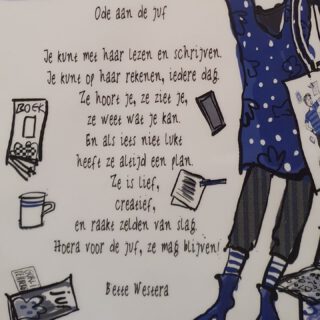 Ode aan de juf
Je kunt met haar lezen en schrijven.
Je kunt op haar rekenen, iedere dag.
Ze hoort je, ze ziet je,
ze weet wat je kan.
En als iets niet lukt
heeft ze altijd een plan.
Ze is lief,
creatief,
en raakt zelden van slag.
Hoera voor de juf, ze mag blijven!
Bette Westera
BOEK
juf